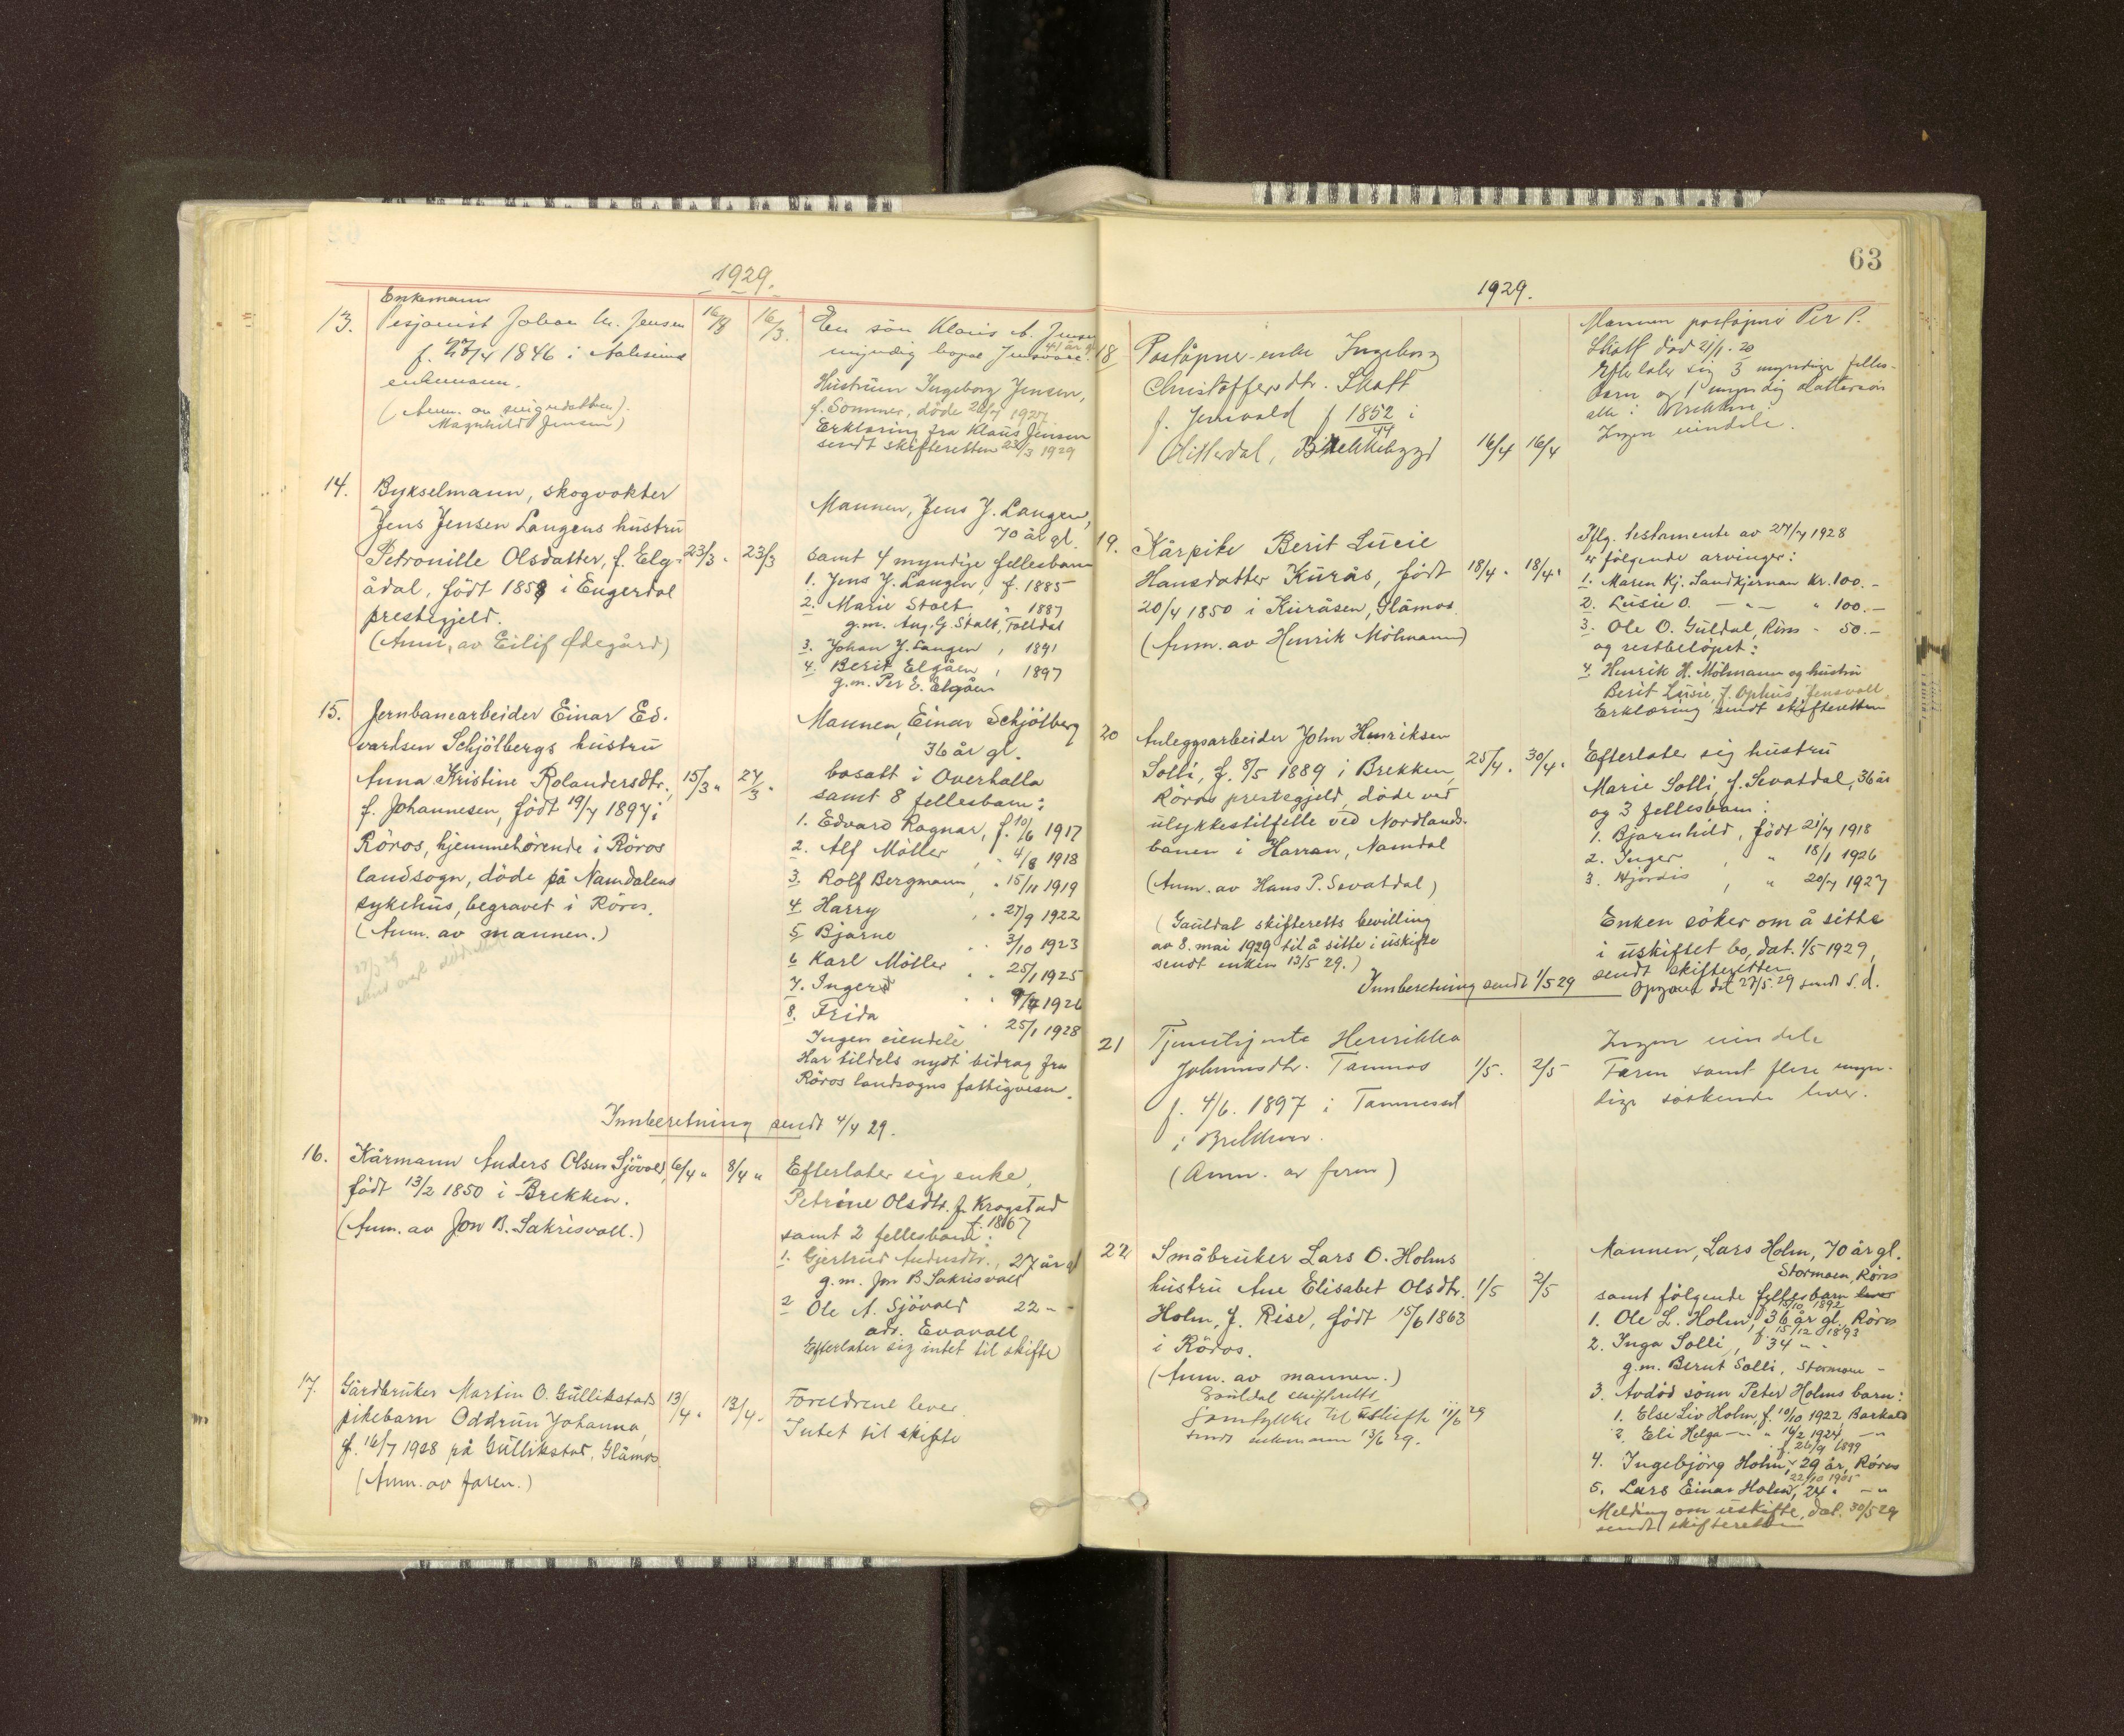 1929.
13.
Enkemann
Pesjonist Johan Chr. Jensen
f. 27/4 1846 i Aalesund
enkemann.
(Anm. av svigredatter).
Magnhild Jensen)
16/3
16/3.
En sön Klaus A. Jensen
41 år g
myndig bopæl Jensvoll.
Hustruen Ingeborg Jensen,
f. Sommer, döde 1927
Erklæring fra Klaus Jensen
sendt skifteretten 23/3 1929
14.
Bykselmann, skogvokter
Jens Jensen Langens hustru
Petronille Olsdatter, f. Elg-
ådal, född 1859 i Engerdal
prestegjeld.
(Anm, av Eilif Ødegård)
23/3 -
23/3
Mannen, Jens J. Langen,
70 år gl.
samt 4 myndige fellesbarn
1. Jens J. Langen, f. 1885
2. Marie Stolt " 1887
g.m. Aug. G. Stolt, Folldal
3. Johan J. Langen , 1891
4. Berit Elgåen , 1897
g.m. Per E. Elgåen
15.
Jernbanearbeider Einar Ed-
vardsen Schjölbergs hustru
Anna Kristine Rolandersdtr.,
f. Johannesen, född 19/7 1897 i
Röros, hjemmehörende i Röros
landsogn, döde på Namdalens
sykehus, begravet i Röros.
(Anm. av mannen.)
15/3 "
27/3 "
Mannen, Einar Schjölberg
36 år gl.
bosatt i Overhalla
samt 8 fellesbarn:
1. Edvard Ragnar, f. 10/6 1917
2. Alf Möller , " 4/8 1918
3. Rolf Bergmann , " 15/11 1919
4. Harry , " 27/9 1922
5. Bjarne " " 3/10 1923
6. Karl Möller " " 25/1 1925
7. Inger " " 9/7 1926
8. Frida " 25/1 1928
Ingen eiendele
Har tildels nydt bidrag fra
Röros landsogns fattigvesen.
Innberetning sendt 4/4 29.
16.
Kårmann Anders Olsen Sjövold,
född 13/2 1850 i Brekken.
(Anm. av Jon B. Sakrisvoll.)
6/4 "
8/4 "
Efterlater sig enke,
Petrine Olsdtr. f. Krogstad
f. 1867
samt 2 fellesbarn:
1. Gjertrud Andersdtr., 27 år gl
g.m. Jon B. Sakrisvoll
2 Ole A. Sjövold 22 - -
adr. Evavoll
Efterlater sig intet til skifte
17.
Gårdbruker Martin O. Gullikstads
pikebarn Oddrun Johanna,
f. 16/7 1928 på Gullikstad, Glåmos.
(Anm. av faren.)
13/4 "
13/4 -
Foreldrene lever.
Intet til skifte
63
1929.
18
Poståpner-enke Ingeborg
Christoffersdtr. Skott
f. Jensvold f 1852 i
Hitterdal, Brekkebygd
16/4
16/4
Mannen poståpner Per P.
Skott död 21/1 - 20
Efterlater sig 3 myndige felles-
barn og 1 myndig dattersön
alle i Brekken.
Ingen eiendele.
19.
Kårpike Berit Lucie
Hansdatter Kurås, född
20/4 1850 i Kuråsen, Glåmos.
(Anm. av Henrik Mölmann)
18/4 "
18/4 "
Iflg. testamente av 27/7 1928
er fölgende arvinger:
1. Maren Kj. Sandkjernan Kr. 100.-
2. Lusie O. — " — " 100.-
3. Ole O. Guldal, Röros - 50.-
og restbelöpet:
4. Henrik H. Mölmann og hustru
Berit Lusie, f. Ophus, Jensvoll
Erklæring sendt skifteretten
20
Anleggsarbeider John Henriksen
Solli, f. 8/5 1889 i Brekken,
Röros prestegjeld, döde ved
ulykkestilfelle ved Nordlands-
banen i Harran, Namdal
(Anm. av Hans P. Sevatdal)
(Gauldal skifteretts bevilling
av 8. mai 1929 til å sitte i uskifte
sendt enken 13/5 29.)
25/4 "
30/4 "
Efterlater sig hustru
Marie Solli, f. Sevatdal, 36 år
og 3 fellesbarn:
1. Bjarnhild, född 21/7 1918
2. Inger , " 18/1 1926
3. Hjördis , " 20/7 1927
Enken söker om å sitte
i uskiftet bo, dat. 1/5 1929,
sendt skifteretten
Innberetning sendt 1/5 29
Opgave dat 27/5 29 sendt s.d.
21
Tjenestejente Henrikka
Johannsdtr. Tamnes
f. 4/6. 1897 i Tamneset
i Brekken.
(Anm. av faren)
1/5.
2/5
Ingen eiendele
Faren samt flere myn-
dige söskende lever.
22
Småbruker Lars O. Holms
hustru Ane Elisabet Olsdtr.
Holm, f. Rise, född 15/6 1863
i Röros.
(Anm. av mannen.)
Gauldal skifteretts
samtykke til uskifte 11/6 29
sendt enkemannen 13/6 29.
1/5
2/5
Mannen, Lars Holm, 70 år gl.
Stormoen, Röros
samt fölgende fellesbarn lever
f 15/10 1892
1. Ole L. Holm, 36 år gl. Röros
f. 15/12 1893
2. Inga Solli, 34 " -
g.m. Bernt Solli, Stormoen -
3. Avdöd sönn Peter Holms barn:
1. Else Liv Holm, f. 10/10 1922, Barkald
2. Eli Helga — " — " 16/2 1924, — " —
f. 26/9 1899
4. Ingebjörg Holm, 29 år, Röros
22/10 1905
5. Lars Einar Holm, 24 " — " —
Melding om uskifte, dat. 30/5 29
sendt skifteretten